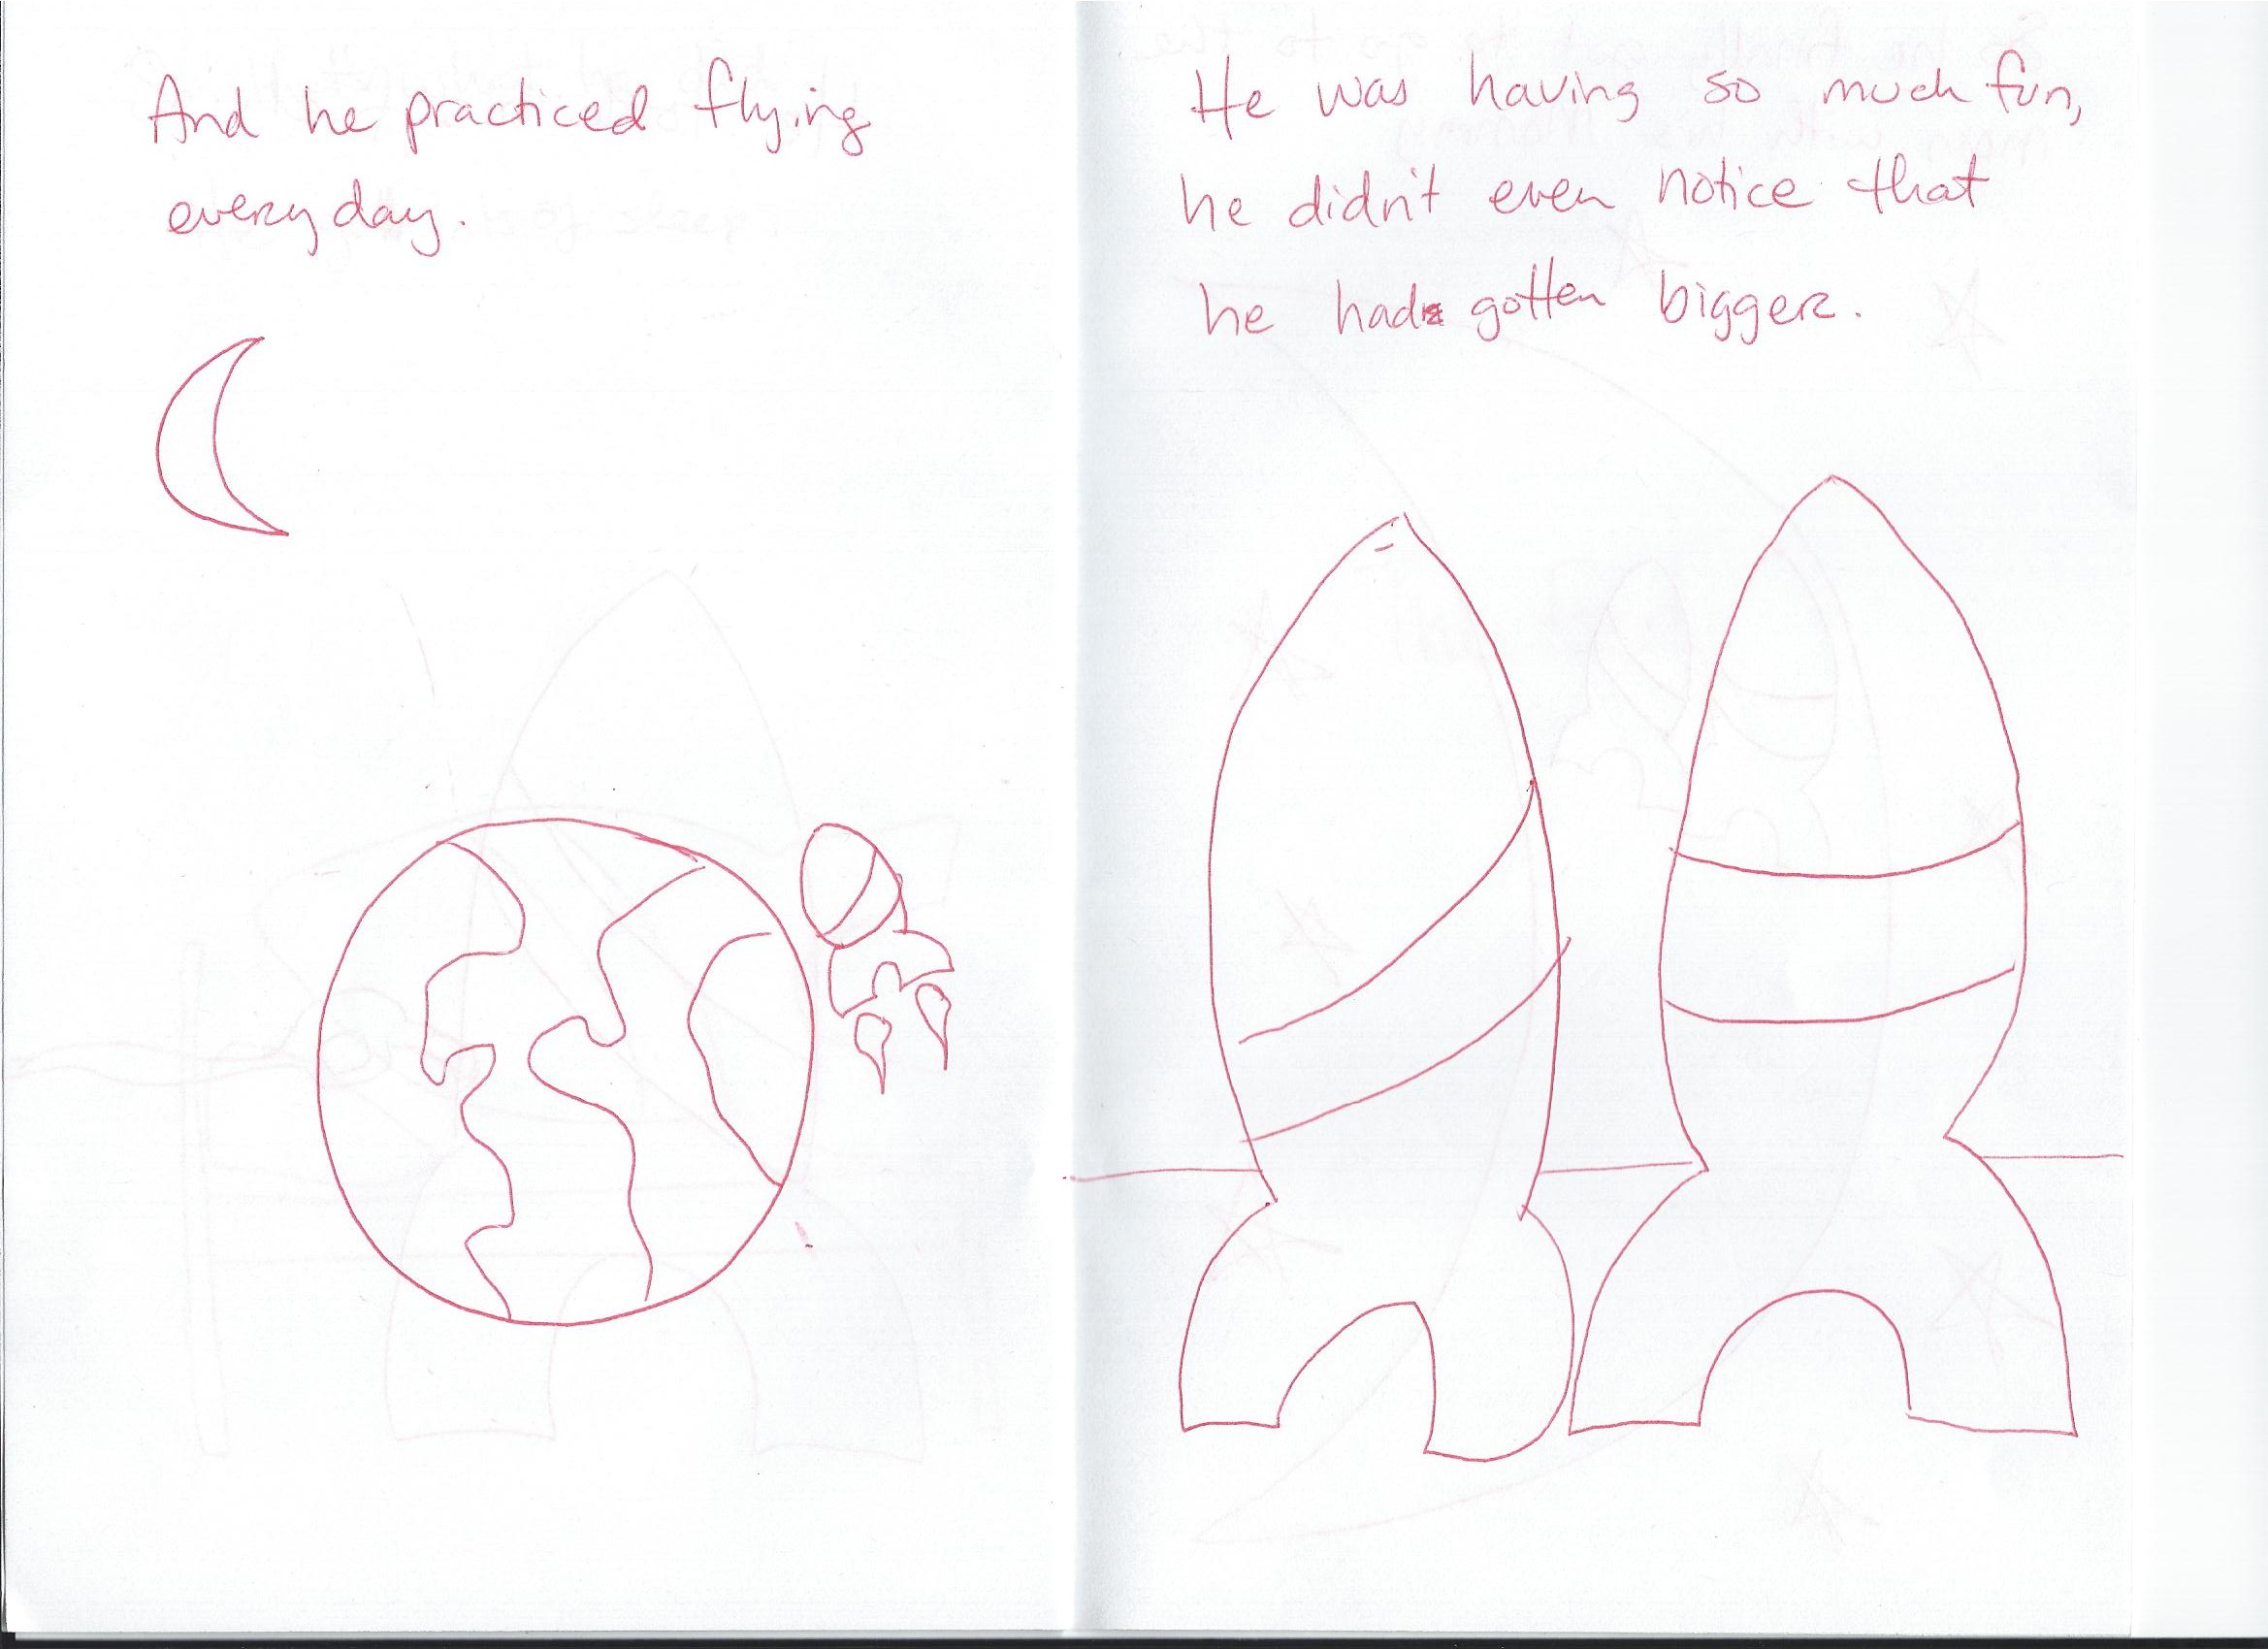 And he practiced flying
everyday.
He was having so much fun,
he didn't even notice that
he had gotten bigger.